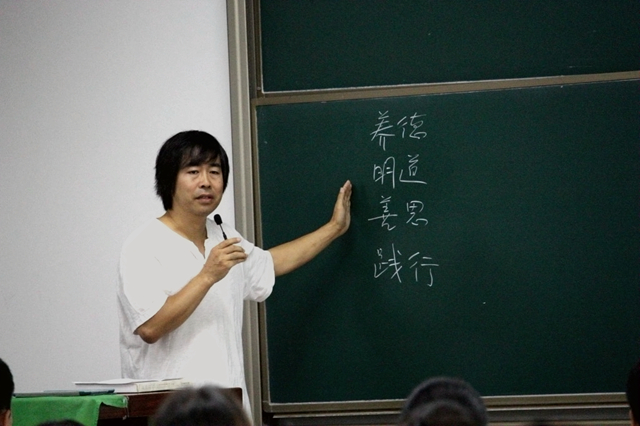 养德
明道
善思
践行